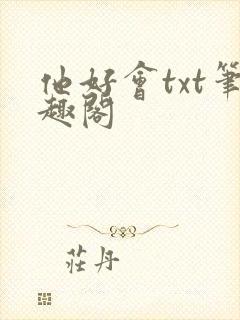 他好會txt筆
趣閣
莊丹